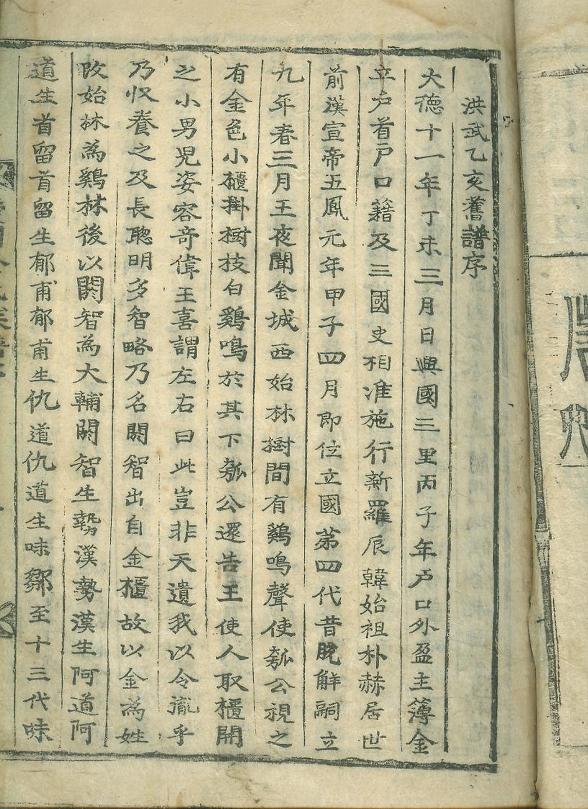 洪武乙亥舊譜序
大德十一年丁未三月日興國三里丙子年戶口外盈主簿金
立戶首戶口籍及三國史相准施行新羅辰韓始祖朴赫居世
前漢宣帝五鳳元年甲子四月即位立國第四代昔脫解嗣立
九年春三月王夜聞金城西始林樹間有鷄鳴聲使瓠公視之
有金色小櫃掛樹技白鷄鳴於其下瓠公還告王使人取櫃開
之小男兒姿容奇偉王喜謂左右曰此豈非天遺我以令胤乎
乃收養之及長聰明多智略乃名閼智出自金櫃故以金為姓
改始林為鷄林後以閼智為大輔閼智生勢漢勢漢生阿道阿
道生首留首留生郁甫郁甫生仇道仇道生味鄒至十三代味